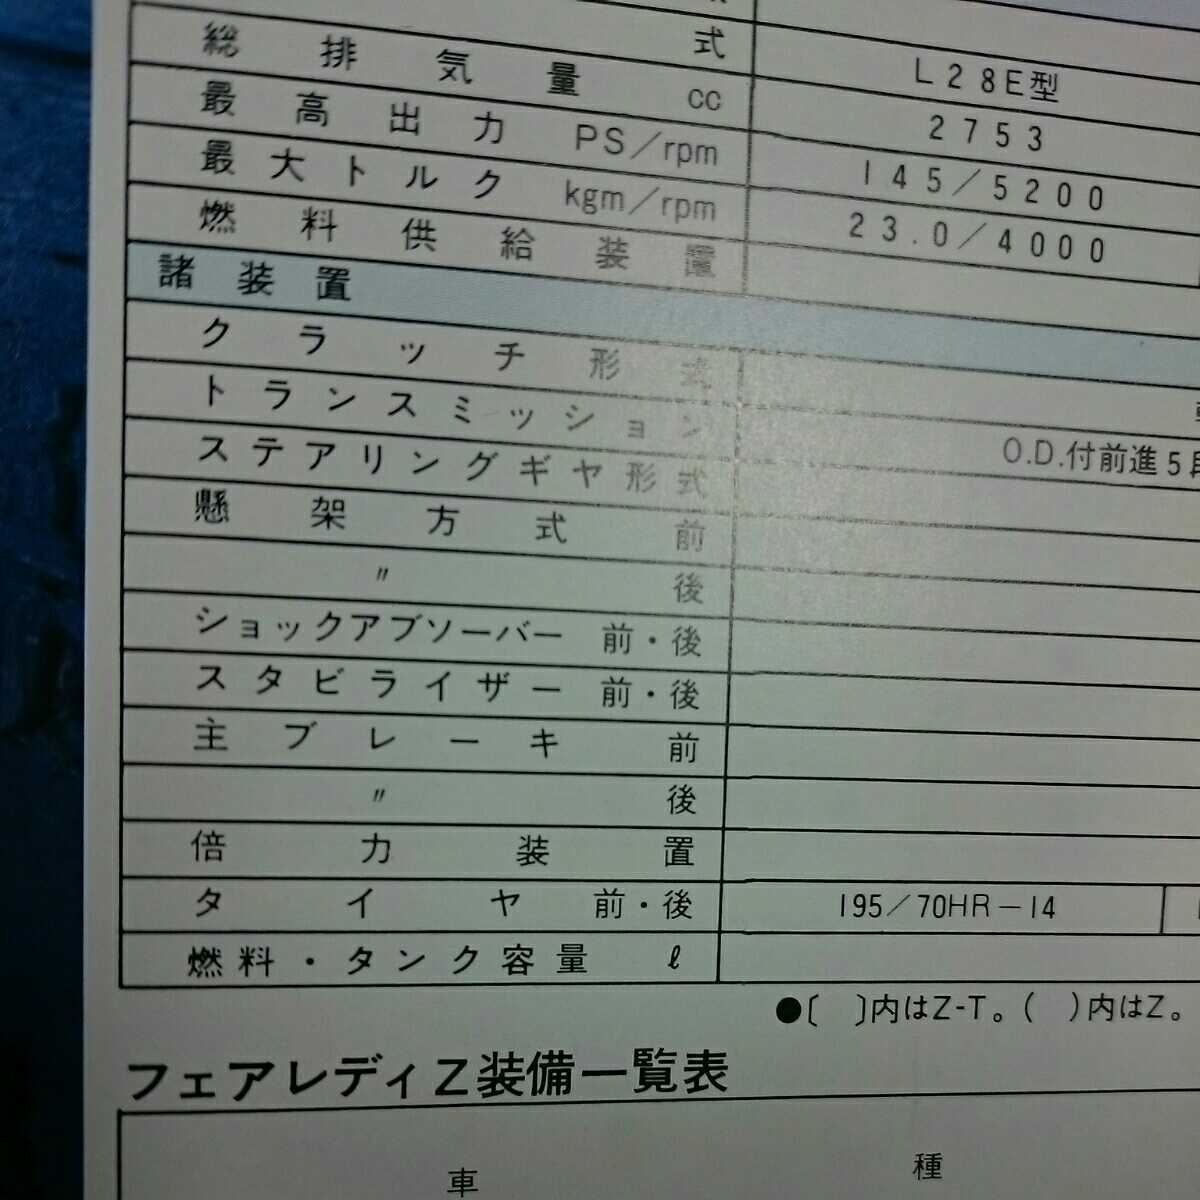 式 L28E型
総排気量 cc 2753
最高出力 PS/rpm 145/5200
最大トルク kgm/rpm 23.0/4000
燃料供給装置
諸装置
クラッチ形式
トランスミッション O.D.付前進5段
ステアリングギヤ形式
懸架方式 前
〃 後
ショックアブソーバー 前・後
スタビライザー 前・後
主ブレーキ 前
〃 後
倍力装置
タイヤ 前・後 195/70HR-14
燃料・タンク容量 ℓ
●〔 〕内はZ-T。( )内はZ。
フェアレディZ装備一覧表
車種